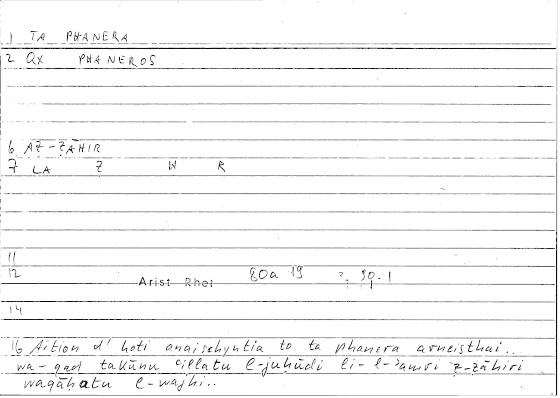 1 TA PHANERA
2 Qx PHANEROS
6 AẒ-ẒĀHIR
7 LA Z W R
11
12 Arist Rhet 80a 19 ; 90.1
14
16 Aition d' hoti anaischyntia to ta phanera arneisthai..
wa-qad takūnu ʿillatu l-juḥūdi li-l-ʾamri ẓ-ẓāhiri
waqāḥatu l-wajhi..